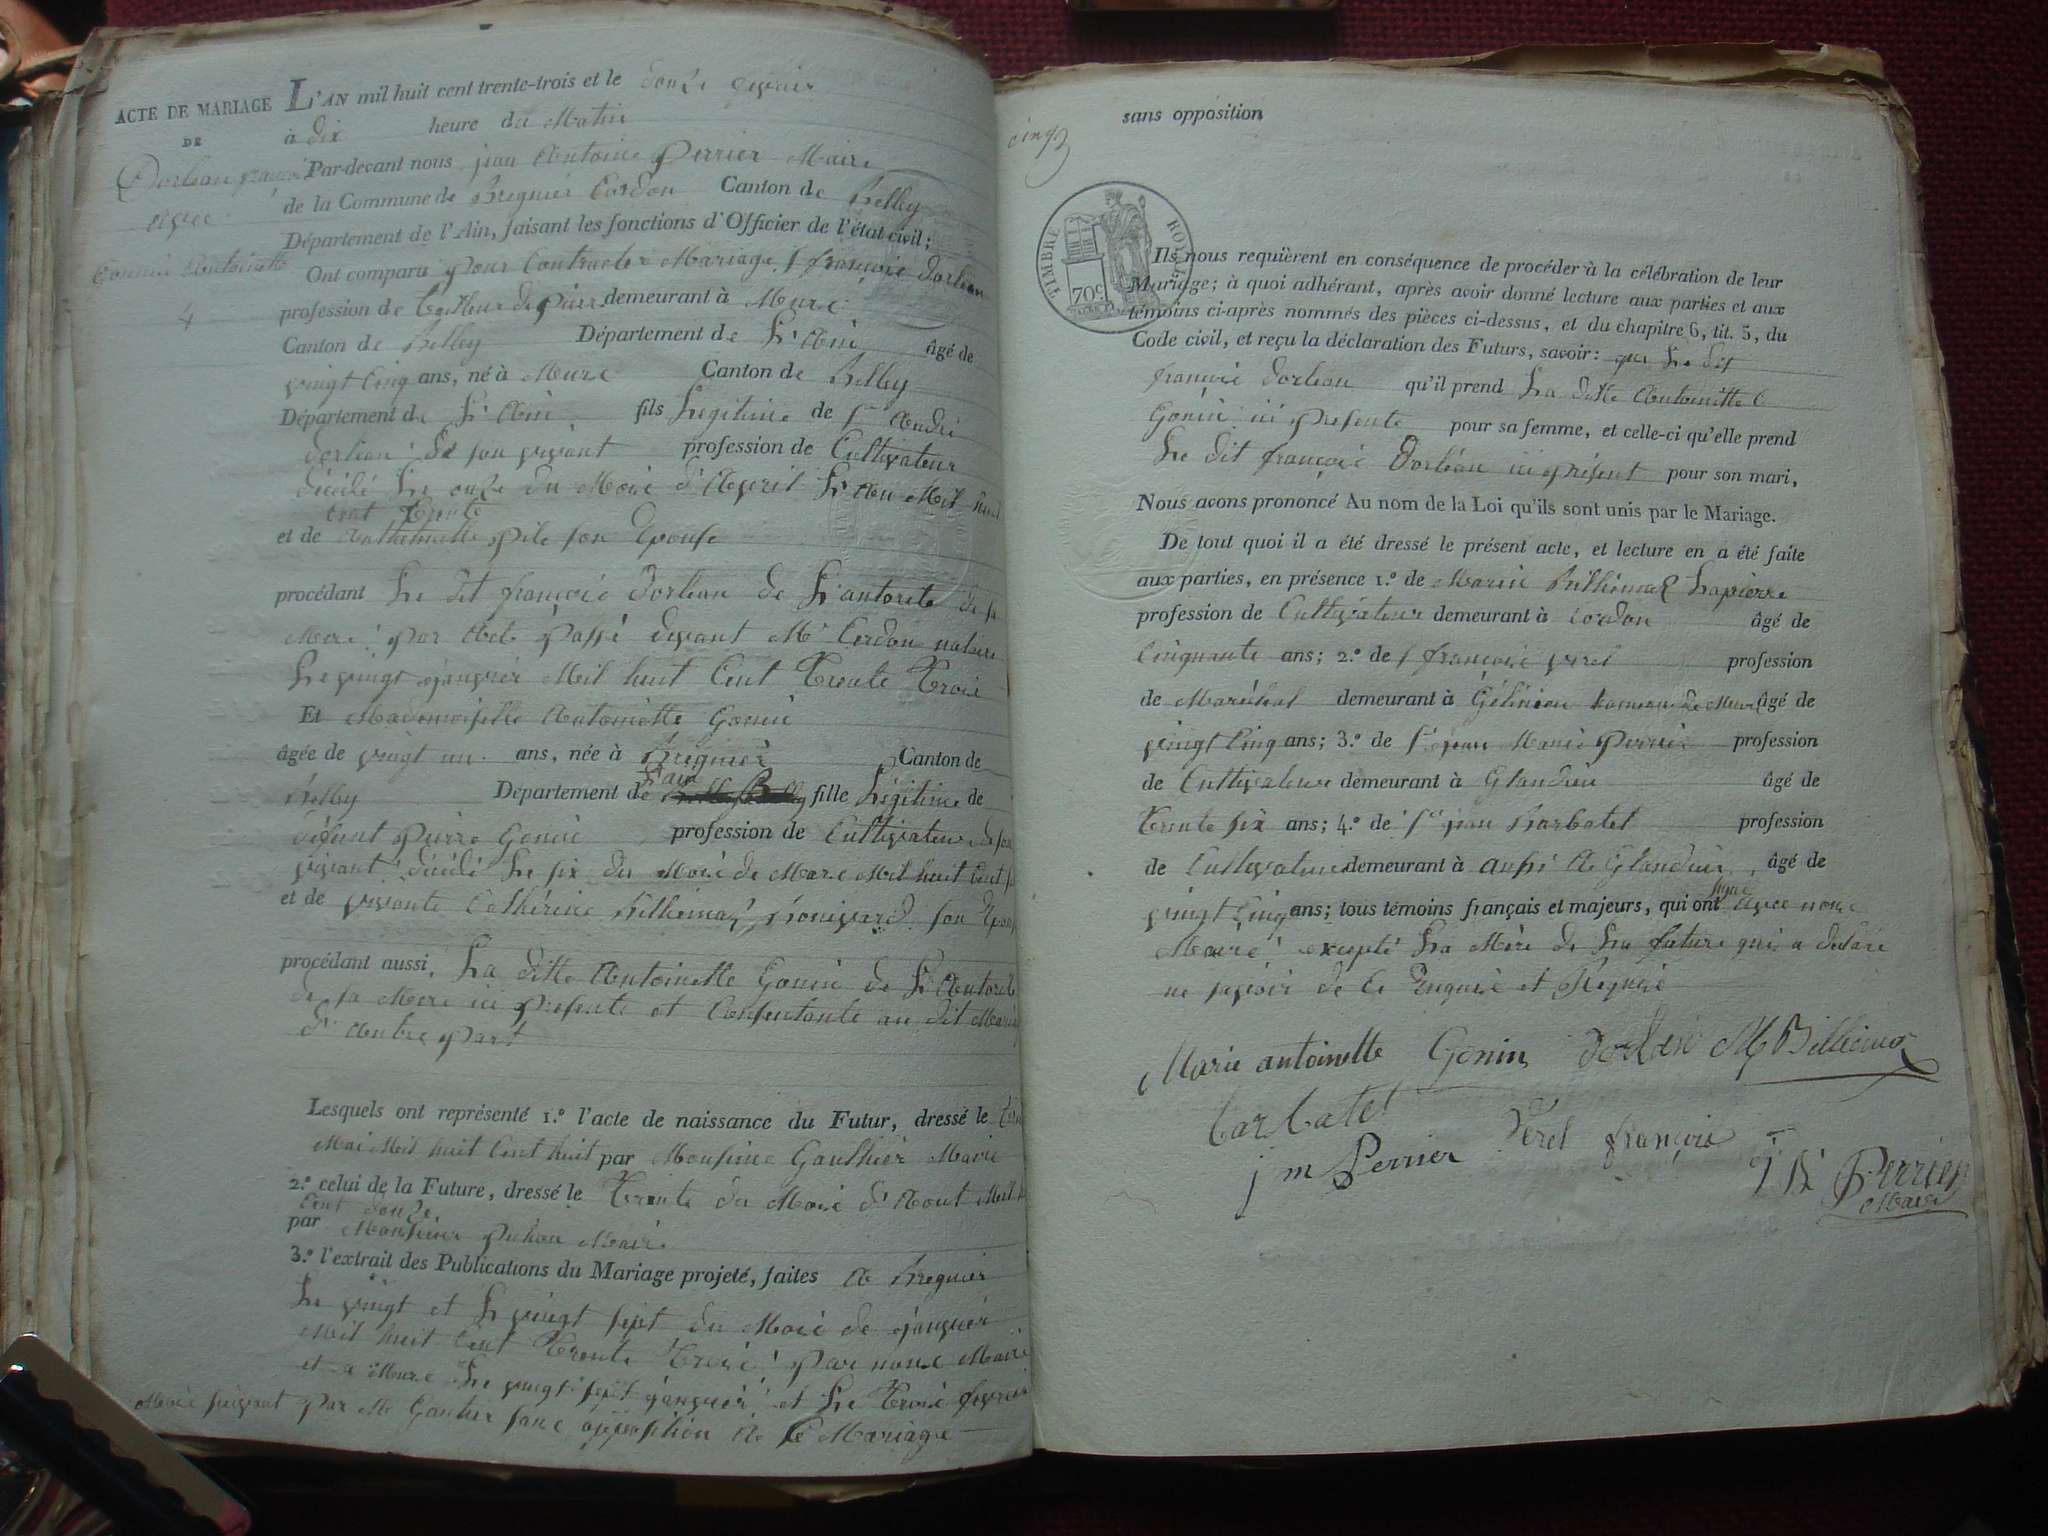 ACTE DE MARIAGE
DE
Dorlean françois
avec
Gonnin Antoinette
4
L'AN mil huit cent trente-trois et le douze
à dix heure du Matin
Par-devant nous jean Antoine Perrier Maire
de la Commune de Bregnier Cordon Canton de Belley
Département de l'Ain, faisant les fonctions d'Officier de l'état civil;
Ont comparu pour Contracter Mariage S françois dorlean
profession de tailleur de pierre demeurant à Mure
Canton de Belley Département de L'Ain âgé de
vingt Cinq ans, né à Mure Canton de Belley
Département de L'Ain fils Legitime de S André
dorlean de son vivant profession de Cultivateur
décédé Le onze du Mois d'Avril L'An Mil huit
Cent Trente
et de son Epouse
procédant Le dit françois dorlean de L'autorité de sa
Mere par Acte passé devant Me Cerdon notaire
Le vingt janvier Mil huit Cent Trente Trois
Et Mademoiselle Antoinette Gonin
âgée de vingt un ans, née à Bregnier Canton de
Belley Département de l'ain fille Légitime de
défunt Pierre Gonin profession de Cultivateur de son
vivant décédé Le six du Mois de Mars Mil huit Cent
et de vivante Cathérine Billiemaz son Epouse
procédant aussi, La ditte Antoinette Gonin de L'Autorité
de sa Mere ici presente et Consentante au dit Mariage
d'Autre part
Lesquels ont représenté 1.º l'acte de naissance du Futur, dressé le
Mai Mil huit Cent huit par Monsieur Gauthier Maire
2.º celui de la Future, dressé le Trente du Mois d'Aout Mil
Cent douze
par Monsieur Maire
3.º l'extrait des Publications du Mariage projeté, faites A Bregnier
Le vingt et Le vingt sept du Mois de janvier
Mil huit Cent Trente Trois par nous Maire
et a Mure Le vingt sept janvier et Le Trois fevrier
par Mr Gautier sans opposition A ce Mariage
cinq
sans opposition
TIMBRE ROYAL
70 c.
Ils nous requièrent en conséquence de procéder à la célébration de leur
Mariage; à quoi adhérant, après avoir donné lecture aux parties et aux
témoins ci-après nommés des pièces ci-dessus, et du chapitre 6, tit. 5, du
Code civil, et reçu la déclaration des Futurs, savoir: que Le dit
françois dorlean qu'il prend La ditte Antoinette
Gonin ici presente pour sa femme, et celle-ci qu'elle prend
Le dit françois Dorléan ici présent pour son mari,
Nous avons prononcé Au nom de la Loi qu'ils sont unis par le Mariage.
De tout quoi il a été dressé le présent acte, et lecture en a été faite
aux parties, en présence 1.º de Marin Billiémaz Lapierre
profession de Cultivateur demeurant à Cordon âgé de
Cinquante ans; 2.º de S françois verel profession
de Maréchal demeurant à Gélinieu hameau de Mure âgé de
vingt Cinq ans; 3.º de Sr jean Marie Perrier profession
de Cultivateur demeurant à Glandieu âgé de
Trente six ans; 4.º de Sr jean Barbatet profession
de Cultivateur demeurant à aussi A Glandieu, âgé de
vingt Cinq ans; tous témoins français et majeurs, qui ont signé Avec nous
Maire excepté La Mère de La future qui a déclaré
ne savoir de ce Enquise et Requise
Marie antoinette Gonin dorlean M Billiemaz
barbatet
j m Perrier Verel françois
J A Perrier
Maire